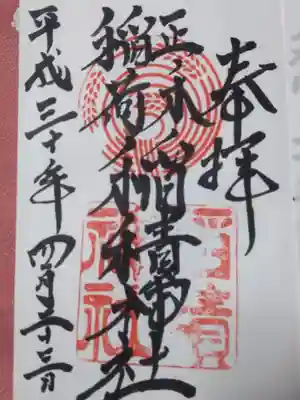 奉拝
正木
稲荷
稲積神社
平成三十年四月二十三日